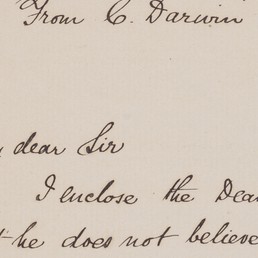 From C. Darwin
dear Sir
I enclose the Dea
he does not believe